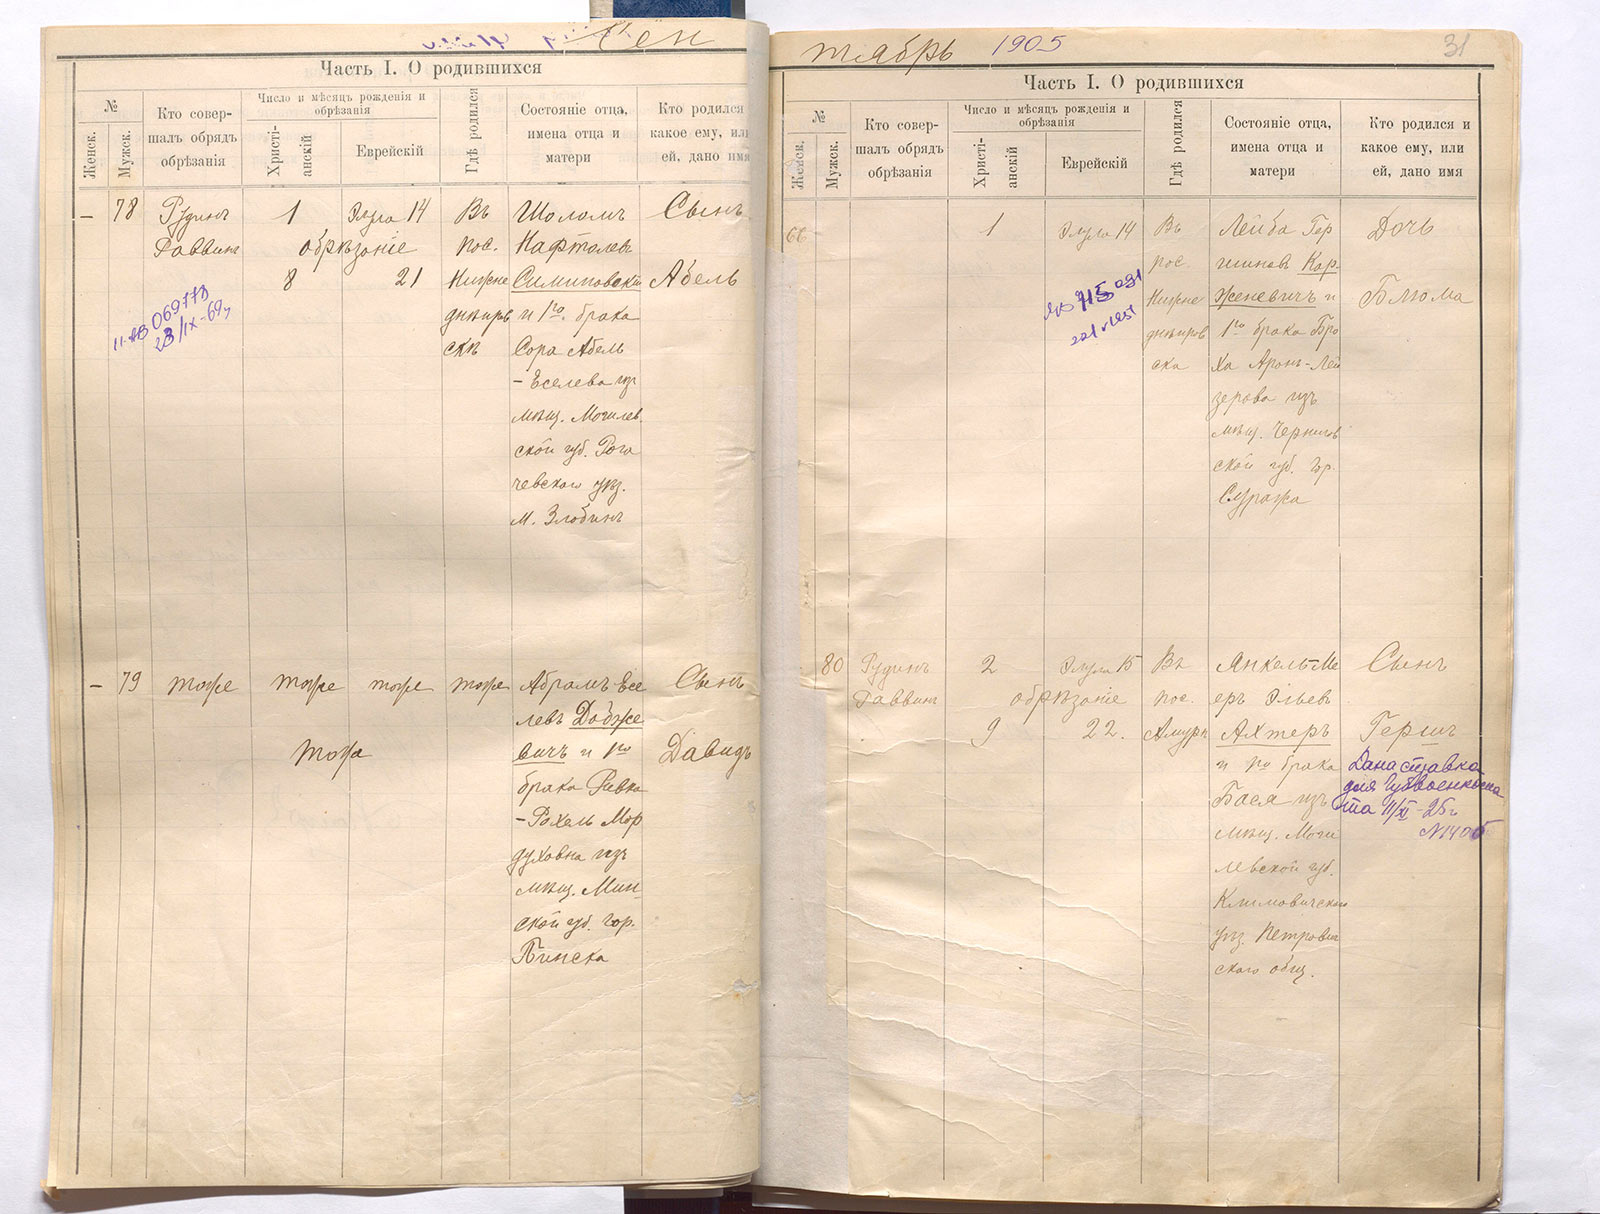 Сен
Часть I. О родившихся
№
Женск.
Мужск.
Кто совер-
шалъ обрядъ
обрѣзанія
Число и мѣсяцъ рожденія и
обрѣзанія
Христі-
анскій
Еврейскій
Гдѣ родился
Состояніе отца,
имена отца и
матери
Кто родился
какое ему, или
ей, дано имя
– 78
Рудинъ
Раввинъ
1
Элула 14
обрѣзаніе
8
21
Въ
пос.
Нижне
днѣпров
скѣ
Шоломъ
Нафтолев
Симиновскій
и 1го. брака
Сора Абель
– Еселева изъ
мѣщ. Могилев
ской губ. Рога
чевскаго уѣз.
м. Злобинъ
Сынъ
Абель
069778
23/IX-69г
– 79
тоже
тоже
тоже
тоже
тоже
Абрамъ Есе
левъ Добже
вичъ и 1го
брака Ривка
– Рохель Мор
духовна изъ
мѣщ. Мин
ской губ. гор.
Пинска
Сынъ
Давидъ
тябрь 1905
31
Часть I. О родившихся
№
Женск.
Мужск.
Кто совер-
шалъ обрядъ
обрѣзанія
Число и мѣсяцъ рожденія и
обрѣзанія
Христі-
анскій
Еврейскій
Гдѣ родился
Состояніе отца,
имена отца и
матери
Кто родился и
какое ему, или
ей, дано имя
66
1
Элула 14
Въ
пос.
Нижне
днѣпров
ска
Лейба Гер
шиновъ Кар-
женевичъ и
1го брака Бро
ха Аронъ-Лей
зерова изъ
мѣщ. Чернигов
ской губ. гор.
Суража
Дочь
Блюма
80
Рудинъ
Раввинъ
2
Элула 15
обрѣзаніе
9
22.
Въ
пос.
Амурѣ
Янкель-Ме
еръ Эльевъ
Ахтеръ
и 1го брака
Бася изъ
мѣщ. Моги
левской губ.
Климовичскаго
уѣз. Петрович
скаго общ.
Сынъ
Гершъ
Дана справка
для Губвоенкома
та 11/XI-25г